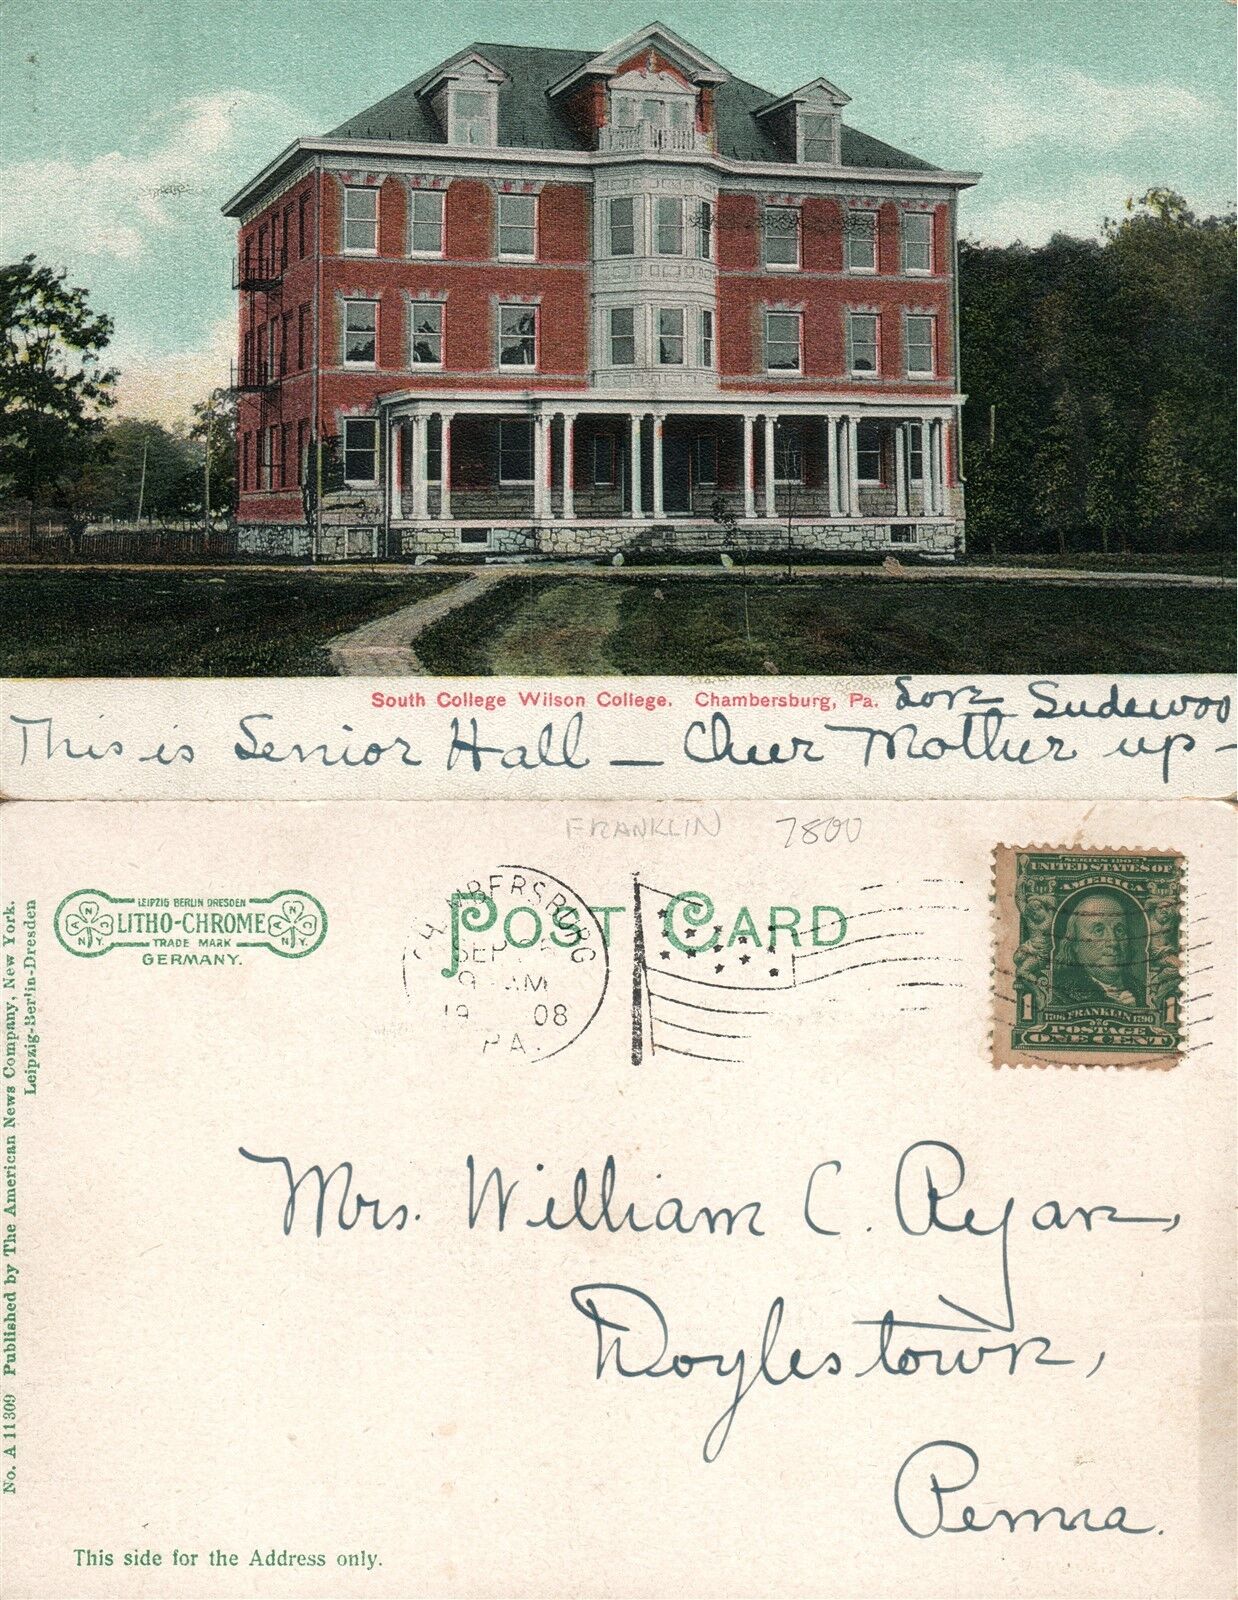 South College Wilson College. Chambersburg, Pa.
This is Senior Hall — Cheer Mother up —
FRANKLIN 7800
LEIPZIG BERLIN DRESDEN
LITHO-CHROME
TRADE MARK
GERMANY.
N.Y.
N.Y.
POST CARD
CHAMBERSBURG
SEP
9 AM
19 08
PA.
SERIES 1902
UNITED STATES OF
AMERICA
1 1
1706 FRANKLIN 1790
POSTAGE
ONE CENT
Mrs. William C. Ryan,
Doylestown,
Penna.
No. A 11309 Published by The American News Company, New York.
Leipzig-Berlin-Dresden
This side for the Address only.